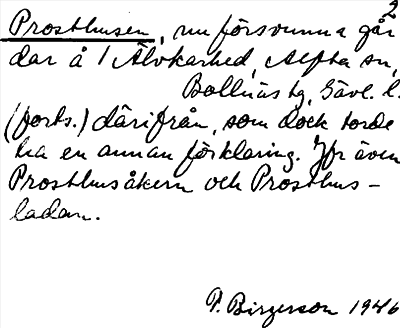 2
Prosthusen, nu försvunna går
dar å 1 Älvkarhed, Alfta sn,
Bollnäs tg, Gävl. l.
(forts.) därifrån, som dock torde
ha en annan förklaring. Jfr även
Prosthusåkern och Prosthus-
ladan.
P. Birgerson 1946